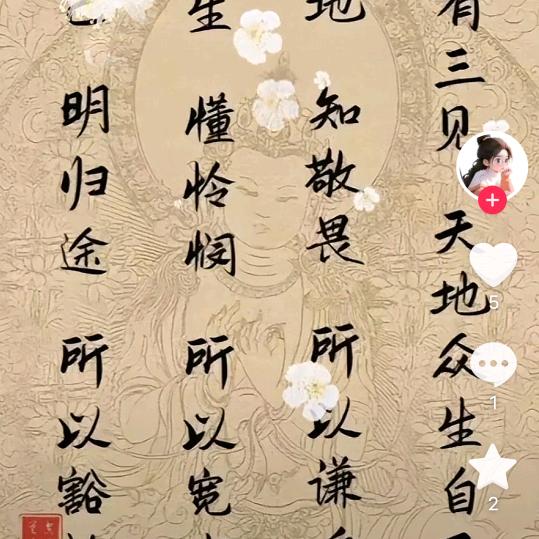 有三见 天地众生自
地 知敬畏 所以谦
生 懂怜悯 所以宽
明归途 所以豁
5
1
2